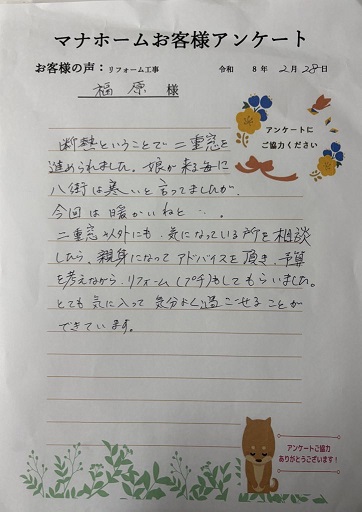 マナホームお客様アンケート
お客様の声：リフォーム工事
令和 8年 2月 28日
福原 様
アンケートに
ご協力ください
断熱ということで二重窓を
進められました。娘が来る毎に
八街は寒いと言ってましたが、
今回は暖かいねと…。
二重窓以外にも、気になっている所を相談
したら、親身になってアドバイスを頂き、予算
を考えながら、リフォーム(プチ)もしてもらいました。
とても気に入って気分よく過ごせることが
できています。
アンケートご協力
ありがとうございます！